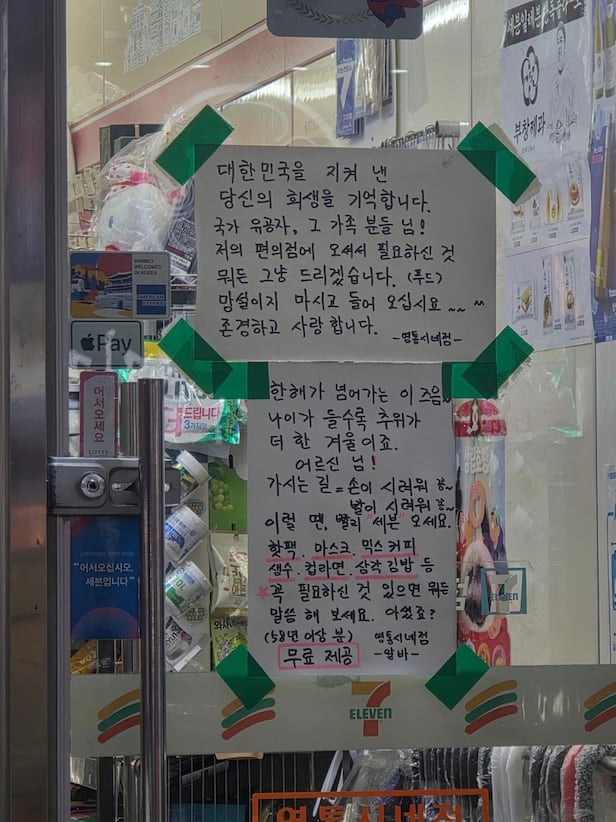 세븐일레븐
부창제과
대한민국을 지켜 낸
당신의 희생을 기억합니다.
국가 유공자, 그 가족 분들 님!
저의 편의점에 오셔서 필요하신 것
뭐든 그냥 드리겠습니다. (푸드)
맘설이지 마시고 들어 오십시요~~^^
존경하고 사랑합니다.
-명통시네점-
WARMLY
WELCOMED
IN KOREA
AMERICAN
EXPRESS
Pay
어서오세요
LOTTE
드립니다
한해가 넘어가는 이 즈음~
나이가 들수록 추위가
더 한 겨울이죠.
어르신 님!
가시는 길 = 손이 시려워 꽁~
발이 시려워 꽁~
이럴 땐, 빨리 "세븐" 오세요.
핫팩. 마스크. 믹스커피
생수. 컵라면. 삼각김밥 등
꼭 필요하신 것 있으면 뭐든
말씀 해 보세요. 아셨죠?
(58년 이상 분)
명통시네점
-알바-
무료 제공
"어서오십시오,
세븐입니다"
7
ELEVEN
7
ELEVEN